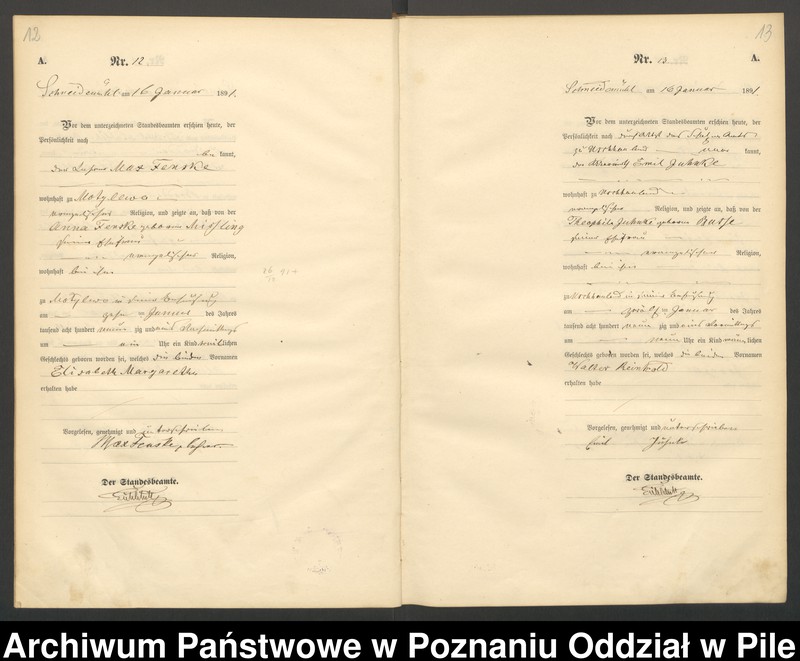 12
A.
Nr. 12.
Schneidemühl am 16 Januar 1891.
Vor dem unterzeichneten Standesbeamten erschien heute, der
Persönlichkeit nach
kannt,
der Lehrer Max Fenske
wohnhaft zu Motylewo
evangelischer Religion, und zeigte an, daß von der
Anna Fenske geborene
seiner Ehefrau
evangelischer Religion,
wohnhaft bei ihm
zu Motylewo in seiner Behausung
am zehn ten Januar des Jahres
tausend acht hundert neun zig und eins Nachmittags
um ein Uhr ein Kind weiblichen
Geschlechts geboren worden sei, welches die beiden Vornamen
Elisabeth Margarethe
erhalten habe
Vorgelesen, genehmigt und unterschrieben
Max Fenske, Lehrer.
Der Standesbeamte.
13
A.
Nr. 13.
Schneidemühl am 16 Januar 1891.
Vor dem unterzeichneten Standesbeamten erschien heute, der
Persönlichkeit nach durch
zu kannt,
der Emil Juhnke
wohnhaft zu
evangelischer Religion, und zeigte an, daß von der
Theophila Juhnke geborene
seiner Ehefrau
evangelischer Religion,
wohnhaft bei ihm
zu in seiner Behausung
am zwölf ten Januar des Jahres
tausend acht hundert neun zig und eins Vormittags
um neun Uhr ein Kind männlichen
Geschlechts geboren worden sei, welches die beiden Vornamen
Walter Reinhold
erhalten habe
Vorgelesen, genehmigt und unterschrieben
Emil Juhnke
Der Standesbeamte.
Archiwum Państwowe w Poznaniu Oddział w Pile